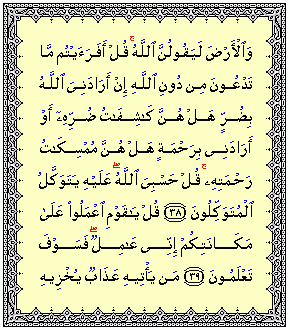 وَٱلْأَرْضَ لَيَقُولُنَّ ٱللَّهُ ۚ قُلْ أَفَرَءَيْتُم مَّا
تَدْعُونَ مِن دُونِ ٱللَّهِ إِنْ أَرَادَنِىَ ٱللَّهُ
بِضُرٍّ هَلْ هُنَّ كَـٰشِفَـٰتُ ضُرِّهِۦٓ أَوْ
أَرَادَنِى بِرَحْمَةٍ هَلْ هُنَّ مُمْسِكَـٰتُ
رَحْمَتِهِۦ ۚ قُلْ حَسْبِىَ ٱللَّهُ ۖ عَلَيْهِ يَتَوَكَّلُ
ٱلْمُتَوَكِّلُونَ ﴿٣٨﴾ قُلْ يَـٰقَوْمِ ٱعْمَلُوا۟ عَلَىٰ
مَكَانَتِكُمْ إِنِّى عَـٰمِلٌ ۖ فَسَوْفَ
تَعْلَمُونَ ﴿٣٩﴾ مَن يَأْتِيهِ عَذَابٌ يُخْزِيهِ